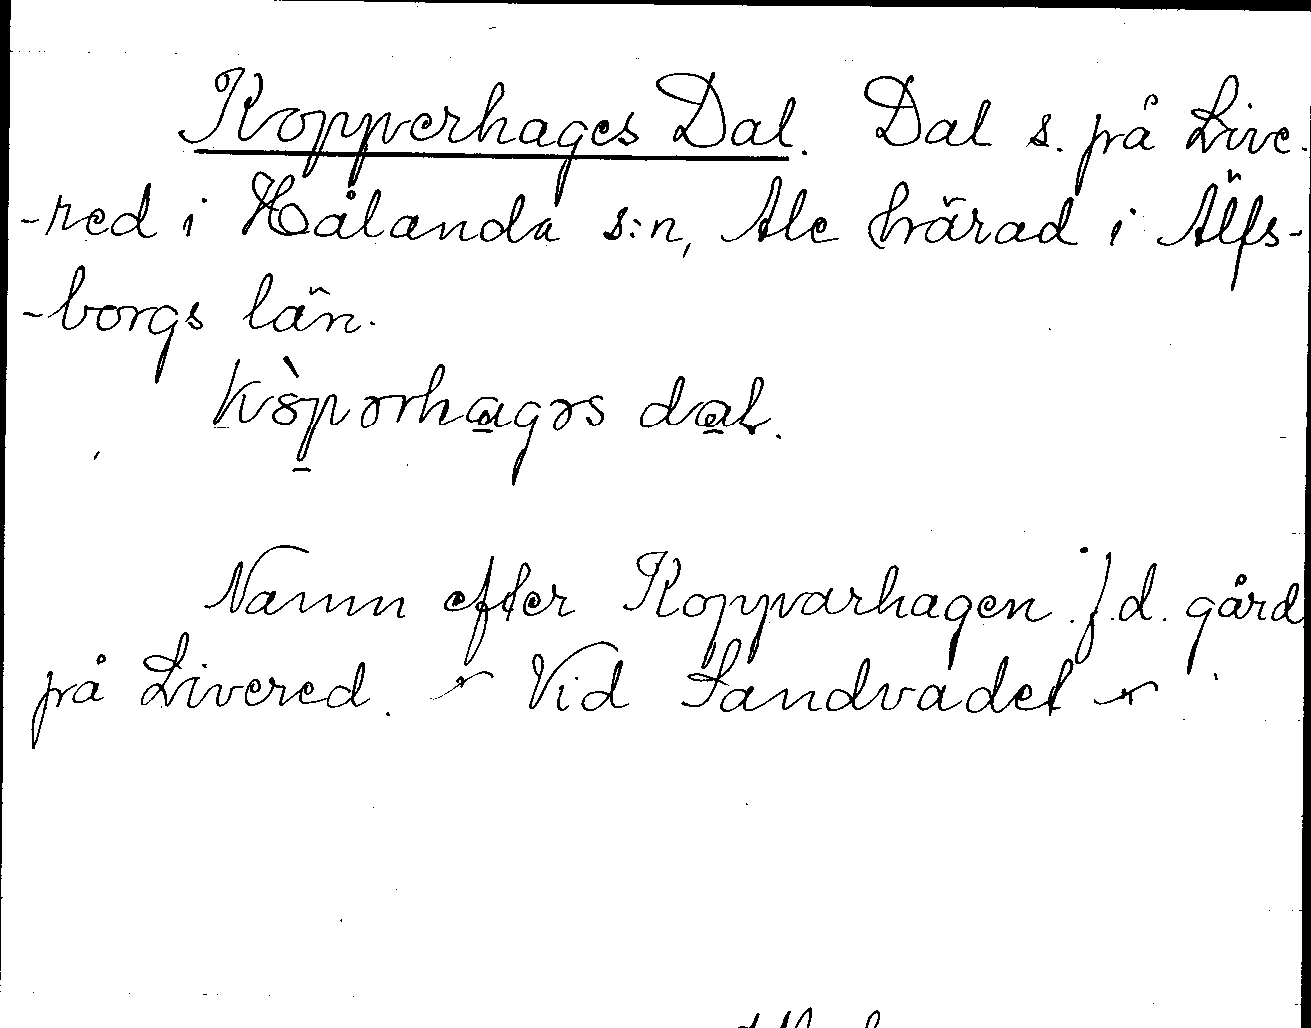 Kopperhages Dal. Dal s. på Live-
-red i Hålanda s:n, Ale härad i Älfs-
-borgs län.
kòpərhagəs dal.
Namn efter Kopparhagen f.d. gård
på Livered. Vid Sandvadet